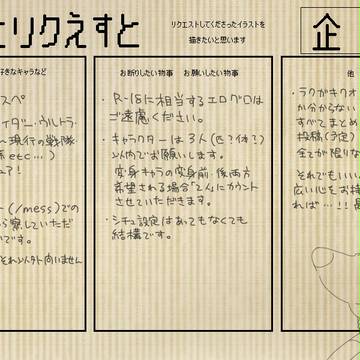 とりくえすと
リクエストしてくださったイラストを
描きたいと思います
企
好きなキャラなど
スペ
イダー・ウルトラ
～現行の戦隊
etc…)
ュア!
ト(/mess)での
ら察していただ
です。
それ以外ト向いません
お断りしたい物事 お願いしたい物事
・R-18に相当するエログロは
ご遠慮ください。
・キャラクターは3人(匹?体?)
以内でお願いします。
変身キャラの変身前・後両方
希望される場合「2人」にカウント
させていただきます。
・シチュ設定はあってもなくても
結構です。
他
・ラクガキクオ
か分からない
すべてまとめ
投稿(予定)
全てが限りな
それでもいい
広い心をお持
れば…!!